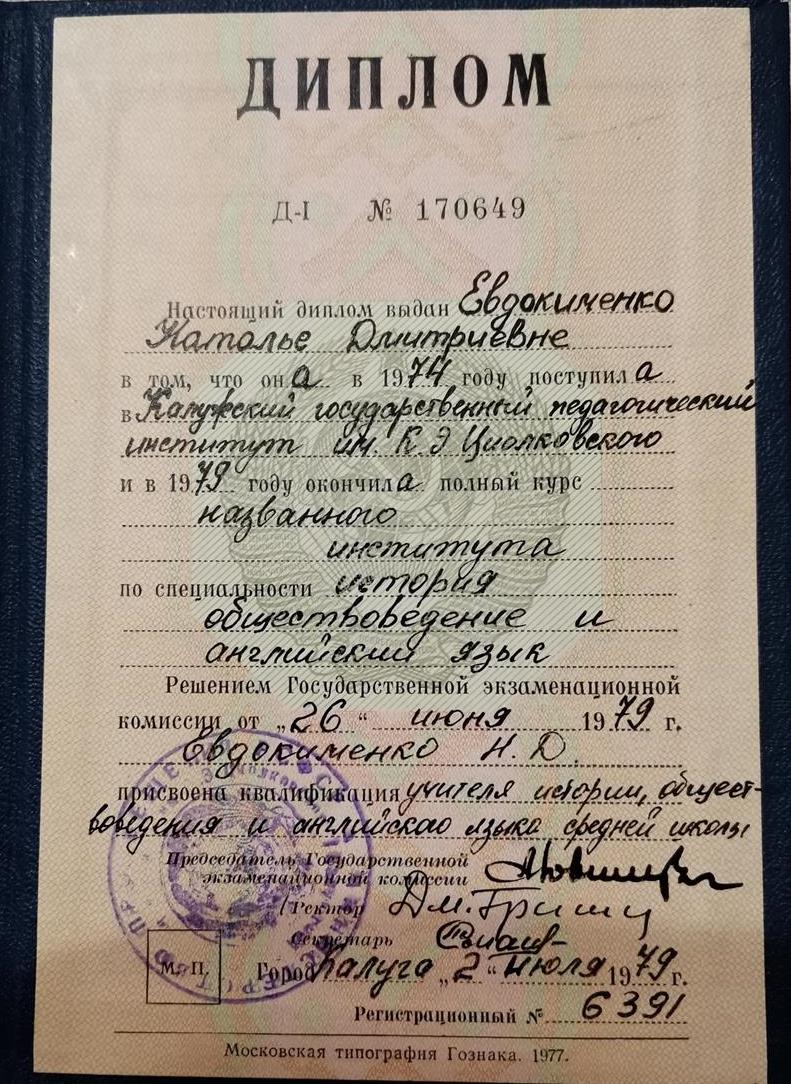 ДИПЛОМ
Д-I № 170649
Настоящий диплом выдан Евдокименко
Наталье Дмитриевне
в том, что она в 1974 году поступила
в Калужский государственный педагогический
институт им. К Э Циолковского
и в 1979 году окончила полный курс
названного
института
по специальности история
обществоведение и
английский язык
Решением Государственной экзаменационной
комиссии от „26“ июня 1979 г.
Евдокименко Н. Д.
присвоена квалификация учителя истории, общест-
воведения и английскао языка средней школы
Председатель Государственной
экзаменационной комиссии
Ректор
Секретарь
М. П.
Город Калуга „2“ июля 1979 г.
Регистрационный № 6391
Московская типография Гознака. 1977.